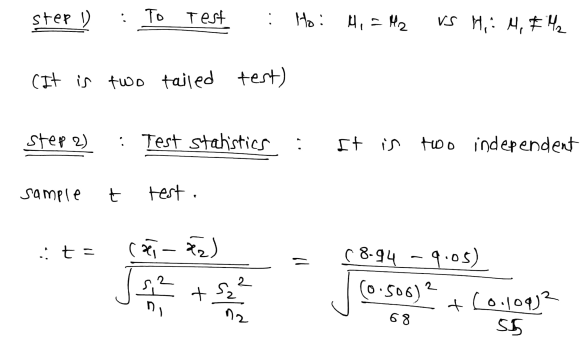 step 1) : To Test : H₀: μ₁ = μ₂ vs H₁: μ₁ ≠ μ₂
(It is two tailed test)
step 2) : Test statistics : It is two independent
sample t test.
∴ t = (x̄₁ - x̄₂) / √(s₁²/n₁ + s₂²/n₂) = (8.94 - 9.05) / √((0.506)²/68 + (0.109)²/55)